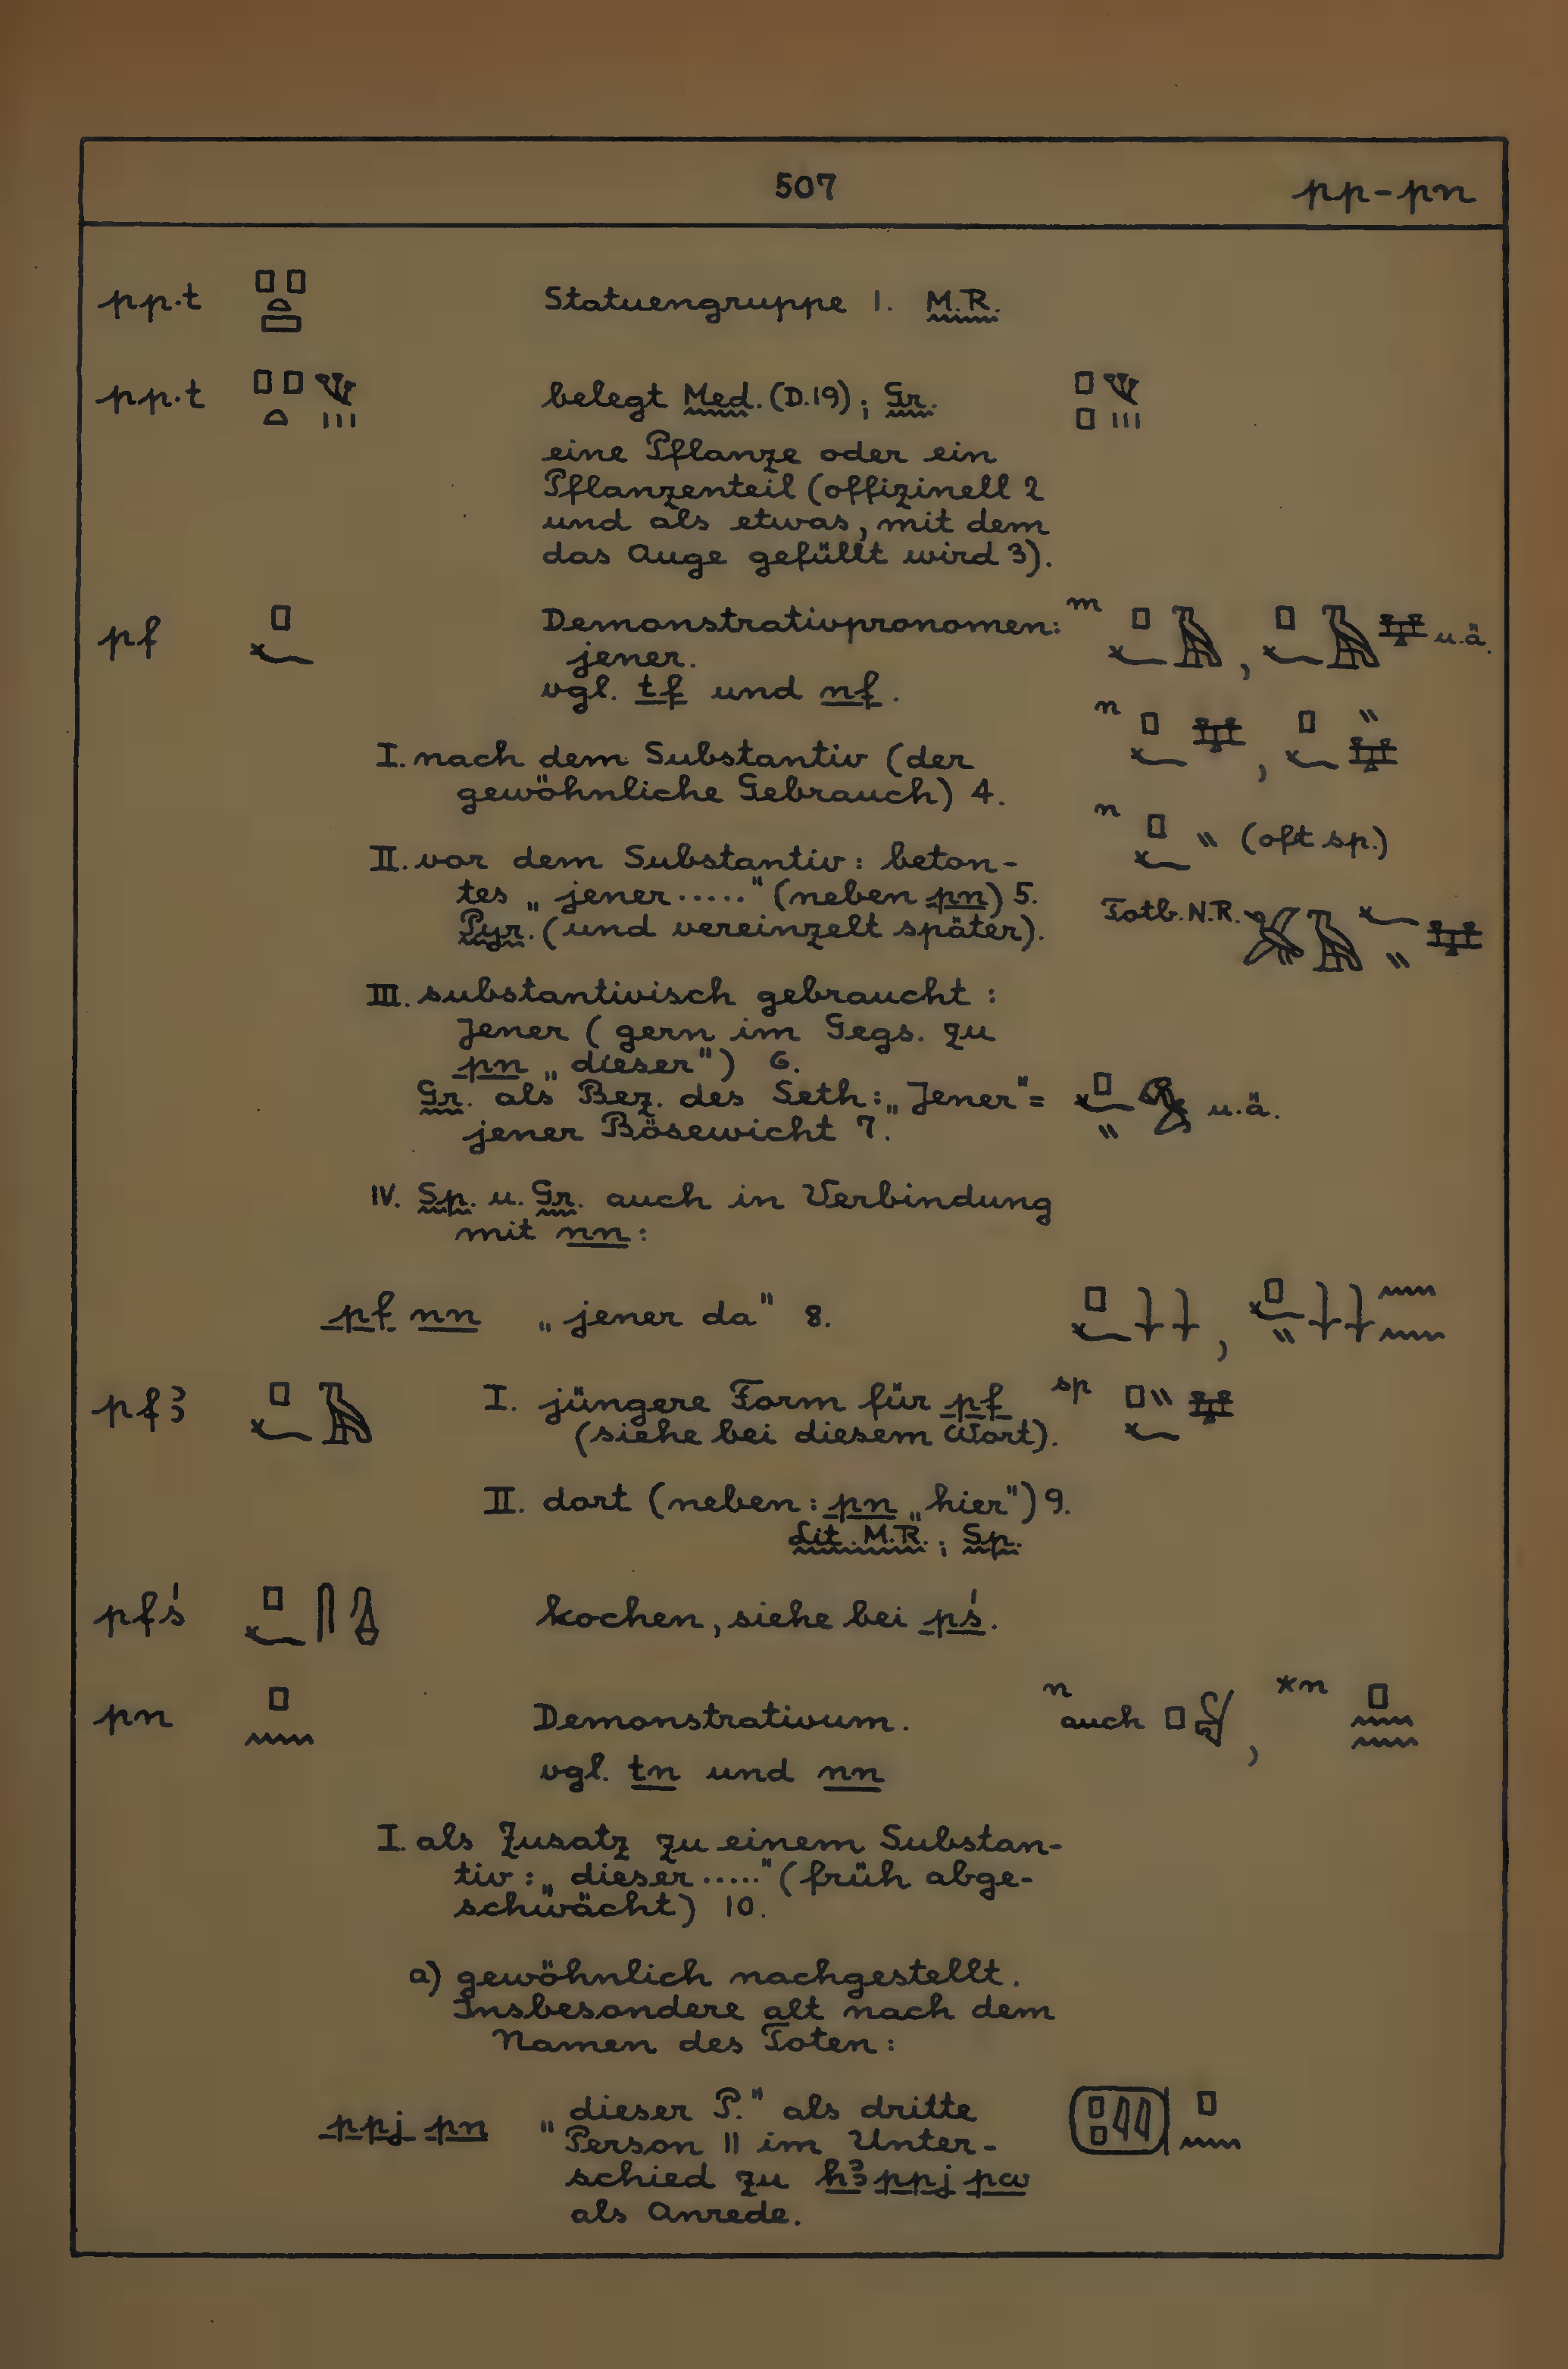 507 pp-pn
pp.t Statuengruppe 1. M.R.
pp.t belegt Med. (D.19); Gr.
eine Pflanze oder ein
Pflanzenteil (offizinell 2
und als etwas, mit dem
das Auge gefüllt wird 3).
pf Demonstrativpronomen: m , u.ä.
jener.
vgl. tf und nf. n ,
I. nach dem Substantiv (der
gewöhnliche Gebrauch) 4.
n (oft sp.)
II. vor dem Substantiv: beton-
tes „jener.....“ (neben pn) 5. Totb. N.R.
Pyr. (und vereinzelt später).
III. substantivisch gebraucht:
Jener (gern im Gegs. zu
pn „dieser“) 6.
Gr. als Bez. des Seth: „Jener“ = u.ä.
jener Bösewicht 7.
IV. Sp. u. Gr. auch in Verbindung
mit nn:
pf nn „jener da“ 8. ,
pfꜣ I. jüngere Form für pf sp
(siehe bei diesem Wort).
II. dort (neben: pn „hier“) 9.
Lit. M.R.; Sp.
pfś kochen, siehe bei pś.
pn Demonstrativum. n auch , *n
vgl. tn und nn
I. als Zusatz zu einem Substan-
tiv: „dieser.....“ (früh abge-
schwächt) 10.
a) gewöhnlich nachgestellt.
Insbesondere alt nach dem
Namen des Toten:
ppj pn „dieser P.“ als dritte
Person 11 im Unter-
schied zu hꜣ ppj pw
als Anrede.